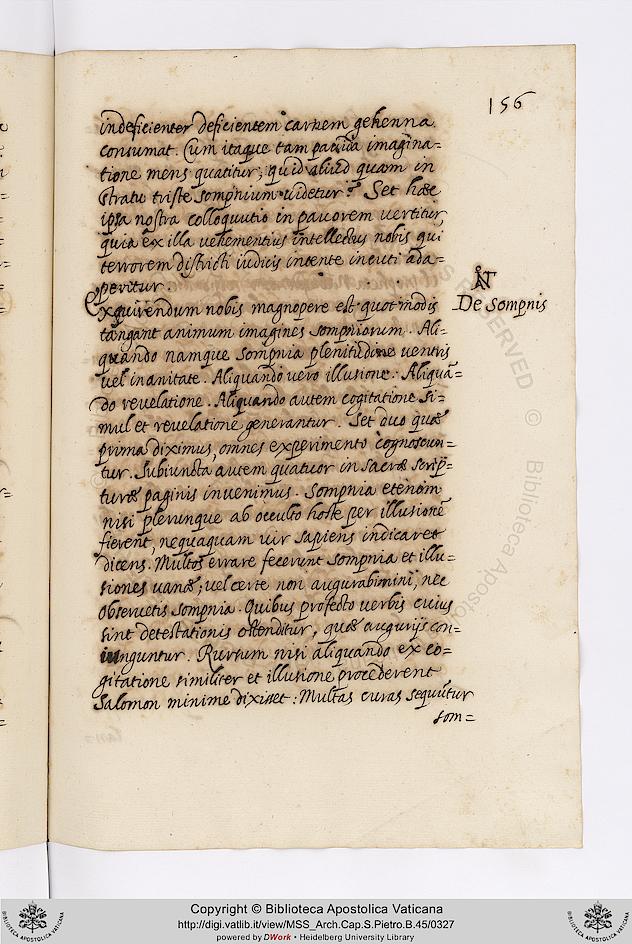 156
indeficienter deficientem carnem gehenna
consumat. Cum itaque tam pavida imagina=
tione mens quatitur, quid aliud quam in
stratu triste somphium videtur? Set haec
ipsa nostra colloquutio in pavorem vertitur,
quia ex illa vehementius intellectus nobis qui
terrorem districti iudicis intente incuti ada=
peritur.
Exquirendum nobis magnopere est quot modis
tangant animum imagines sompniorum. Ali=
quando namque sompnia plenitudine ventris
vel inanitate. Aliquando vero illusione. Aliquā=
do revelatione. Aliquando autem cogitatione si=
mul et revelatione generantur. Set duo quae
prima diximus, omnes experimento cognoscun=
tur. Subiuncta autem quatuor in sacrae scrip=
turae paginis invenimus. Sompnia etenim
nisi plerunque ab occulto hoste per illusione
fierent, nequaquam vir sapiens indicaret
dicens. Multos errare fecerunt sompnia et illu=
siones vanae, vel certe non augurabimini, nec
observetis sompnia. Quibus profecto verbis cuius
sint detestationis ostenditur, quae augurijs con=
iunguntur. Rursum nisi aliquando ex co=
gitatione similiter et illusione procederent
Salomon minime dixisset: Multas curas sequūtur
som=
De sompnis
Copyright © Biblioteca Apostolica Vaticana
http://digi.vatlib.it/view/MSS_Arch.Cap.S.Pietro.B.45/0327
powered by DWork • Heidelberg University Library